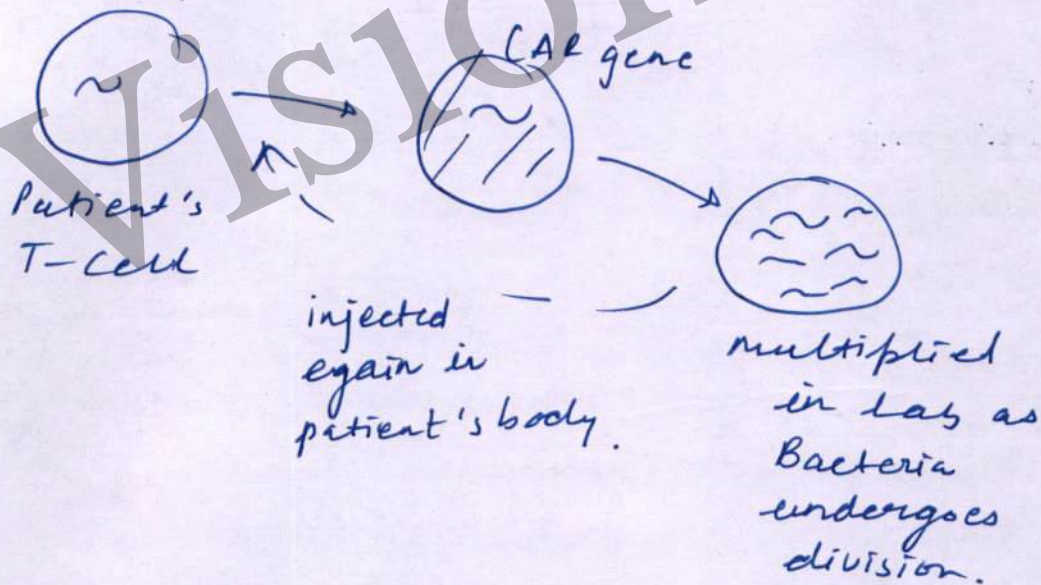 CAR gene
Patient's
T-Cell
injected
again in
patient's body.
multiplied
in lab as
Bacteria
undergoes
division.
Vision